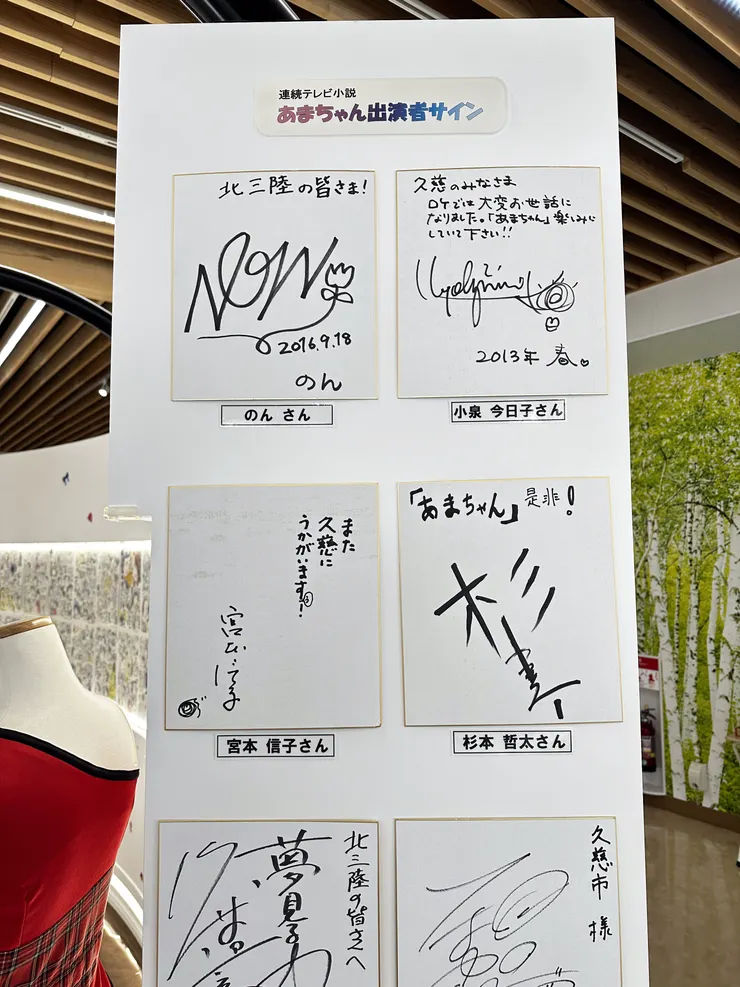 連続テレビ小説
あまちゃん出演者サイン
北三陸の皆さま!
NON
2016.9.18
のん
のん さん
久慈のみなさま
ロケでは大変お世話に
なりました。「あまちゃん」楽しみに
していて下さい!!
2013年 春
小泉 今日子さん
また
久慈に
うかがいます!
宮本信子
宮本 信子さん
「あまちゃん」是非!
杉本哲太
杉本 哲太さん
北三陸の皆さんへ
夢見る力
久慈市 様